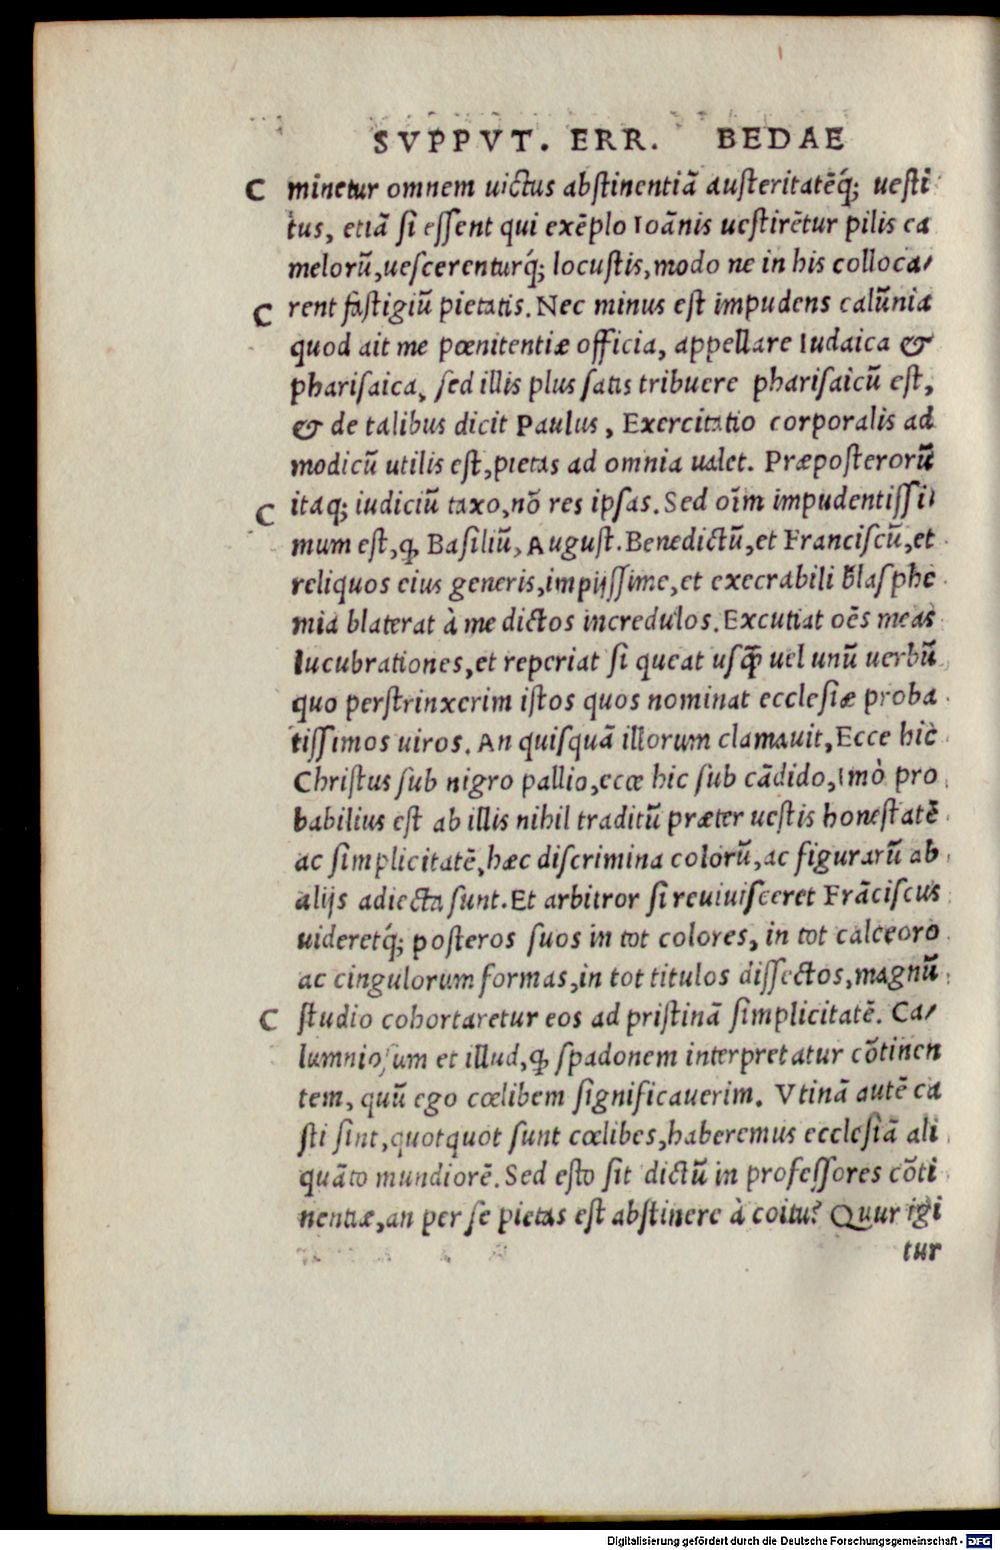 SVPPVT. ERR. BEDAE
C minetur omnem uictus abstinentiã austeritatẽq́; uesti
tus, etiã si essent qui exẽplo Ioãnis uestirẽtur pilis ca
melorũ, uescerenturq́; locustis, modo ne in his colloca/
C rent fastigiũ pietatis. Nec minus est impudens calũnia
quod ait me pœnitentiæ officia, appellare Iudaica &
pharisaica, sed illis plus satis tribuere pharisaicũ est,
& de talibus dicit Paulus, Exercitatio corporalis ad
modicũ utilis est, pietas ad omnia ualet. Præposterorũ
C itaq; iudiciũ taxo, nõ res ipsas. Sed oĩm impudentissi
mum est, ꝙ Basiliũ, August. Benedictũ, et Franciscũ, et
reliquos eius generis, impijssime, et execrabili blasphe
mia blaterat à me dictos incredulos. Excutiat oẽs meas
lucubrationes, et reperiat si queat usꝗ̃ uel unũ uerbũ
quo perstrinxerim istos quos nominat ecclesiæ proba
tissimos uiros. An quisquã illorum clamauit, Ecce hic
Christus sub nigro pallio, ecce hic sub cãdido, Imò pro
babilius est ab illis nihil traditũ præter uestis honestatẽ
ac simplicitatẽ, hæc discrimina colorũ, ac figurarũ ab
alijs adiecta sunt. Et arbitror si reuiuisceret Frãciscus
uideretq́; posteros suos in tot colores, in tot calceorũ
ac cingulorum formas, in tot titulos dissectos, magnũ
C studio cohortaretur eos ad pristinã simplicitatẽ. Ca/
lumniosum et illud, ꝙ spadonem interpretatur cõtinen
tem, quũ ego cœlibem significauerim. Vtinã autẽ ca
sti sint, quotquot sunt cœlibes, haberemus ecclesiã ali
quãto mundiorẽ. Sed esto sit dictũ in professores cõti
nentiæ, an per se pietas est abstinere à coitu? Quur igi
tur
Digitalisierung gefördert durch die Deutsche Forschungsgemeinschaft - DFG